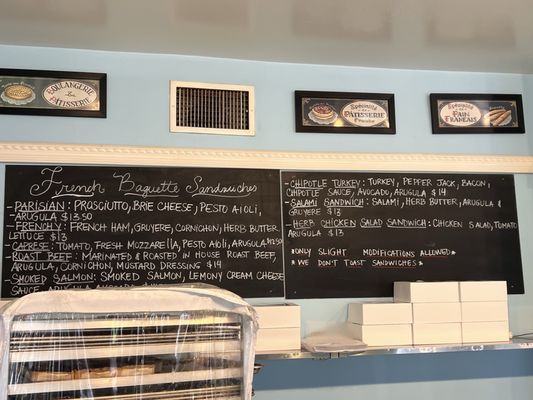 BOULANGERIE
La
PATISSERIE
Spécialité
de
PATISSERIE
Spécialité
de
PAIN FRANÇAIS
French Baguette Sandwiches
- PARISIAN: PROSCIUTTO, BRIE CHEESE, PESTO AIOLI,
- ARUGULA $13.50
- FRENCHY: FRENCH HAM, GRUYERE, CORNICHON, HERB BUTTER,
LETTUCE $13
- CAPRESE: TOMATO, FRESH MOZZARELLA, PESTO AIOLI, ARUGULA $12.50
- ROAST BEEF: MARINATED & ROASTED IN HOUSE ROAST BEEF,
ARUGULA, CORNICHON, MUSTARD DRESSING $14
- SMOKED SALMON: SMOKED SALMON, LEMONY CREAM CHEESE
SAUCE, ARUGULA
- CHIPOTLE TURKEY: TURKEY, PEPPER JACK, BACON,
CHIPOTLE SAUCE, AVOCADO, ARUGULA $14
- SALAMI SANDWICH: SALAMI, HERB BUTTER, ARUGULA &
GRUYERE $13
- HERB CHICKEN SALAD SANDWICH: CHICKEN SALAD, TOMATO
ARUGULA $13
*ONLY SLIGHT MODIFICATIONS ALLOWED*
* WE DON'T TOAST SANDWICHES*